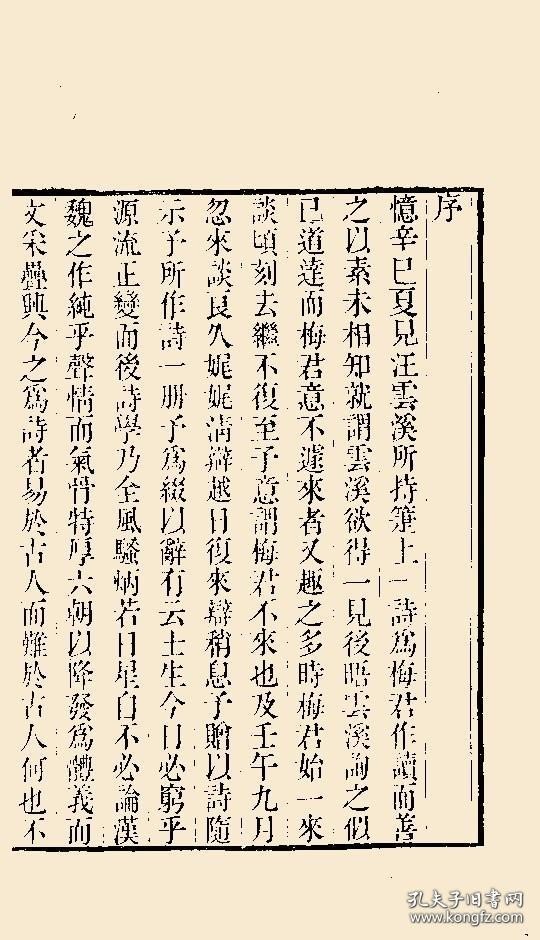 序
憶辛巳夏見汪雲溪所持箑上一詩爲梅君作讀而善
之以素未相知就謂雲溪欲得一見後晤雲溪詢之似
已道達而梅君意不遽來者又趣之多時梅君始一來
談頃刻去繼不復至予意謂梅君不來也及壬午九月
忽來談良久娓娓淸辯越日復來辯稍息予贈以詩隨
示予所作詩一册予爲綴以辭有云士生今日必窮乎
源流正變而後詩學乃全風騷炳若日星自不必論漢
魏之作純乎聲情而氣骨特厚六朝以降發爲體義而
文采疊興今之爲詩者易於古人而難於古人何也不
孔夫子旧书网
www.kongfz.com